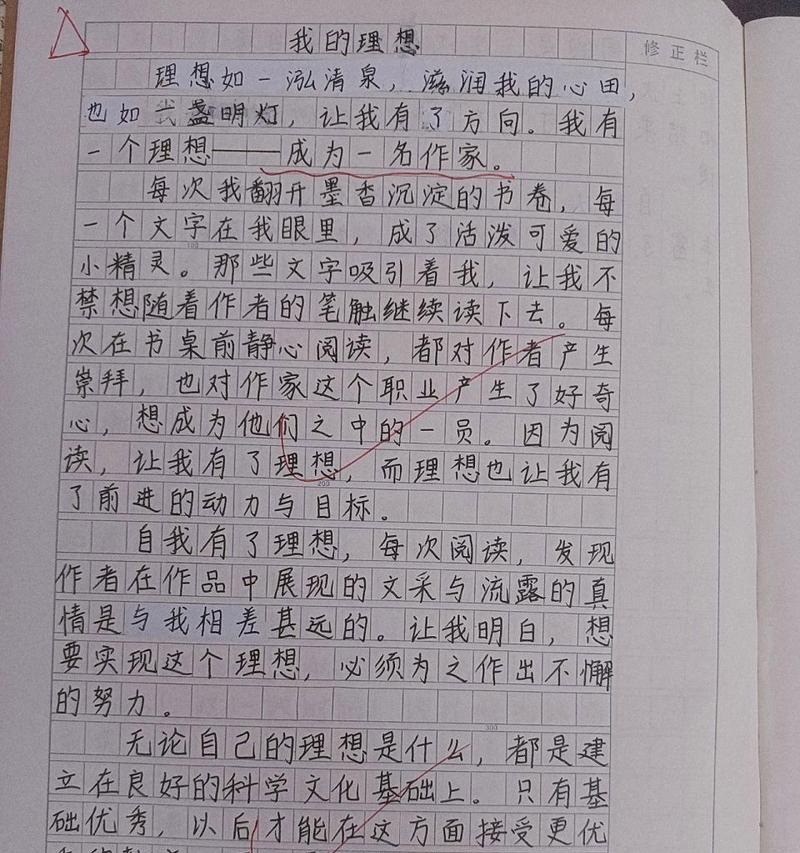 我的理想
修正栏
理想如一泓清泉，滋润我的心田，
也如一盏明灯，让我有了方向。我有
一个理想——成为一名作家。
每次我翻开墨香沉淀的书卷，每
一个文字在我眼里，成了活泼可爱的
小精灵。那些文字吸引着我，让我不
禁想随着作者的笔触继续读下去。每
次在书桌前静心阅读，都对作者产生
崇拜，也对作家这个职业产生了好奇
心，想成为他们之中的一员。因为阅
读，让我有了理想，而理想也让我有
了前进的动力与目标。
自我有了理想，每次阅读，发现
作者在作品中展现的文采与流露的真
情是与我相差甚远的。让我明白，想
要实现这个理想，必须为之作出不懈
的努力。
无论自己的理想是什么，都是建
立在良好的科学文化基础上。只有基
础优秀，以后才能在这方面接受更优